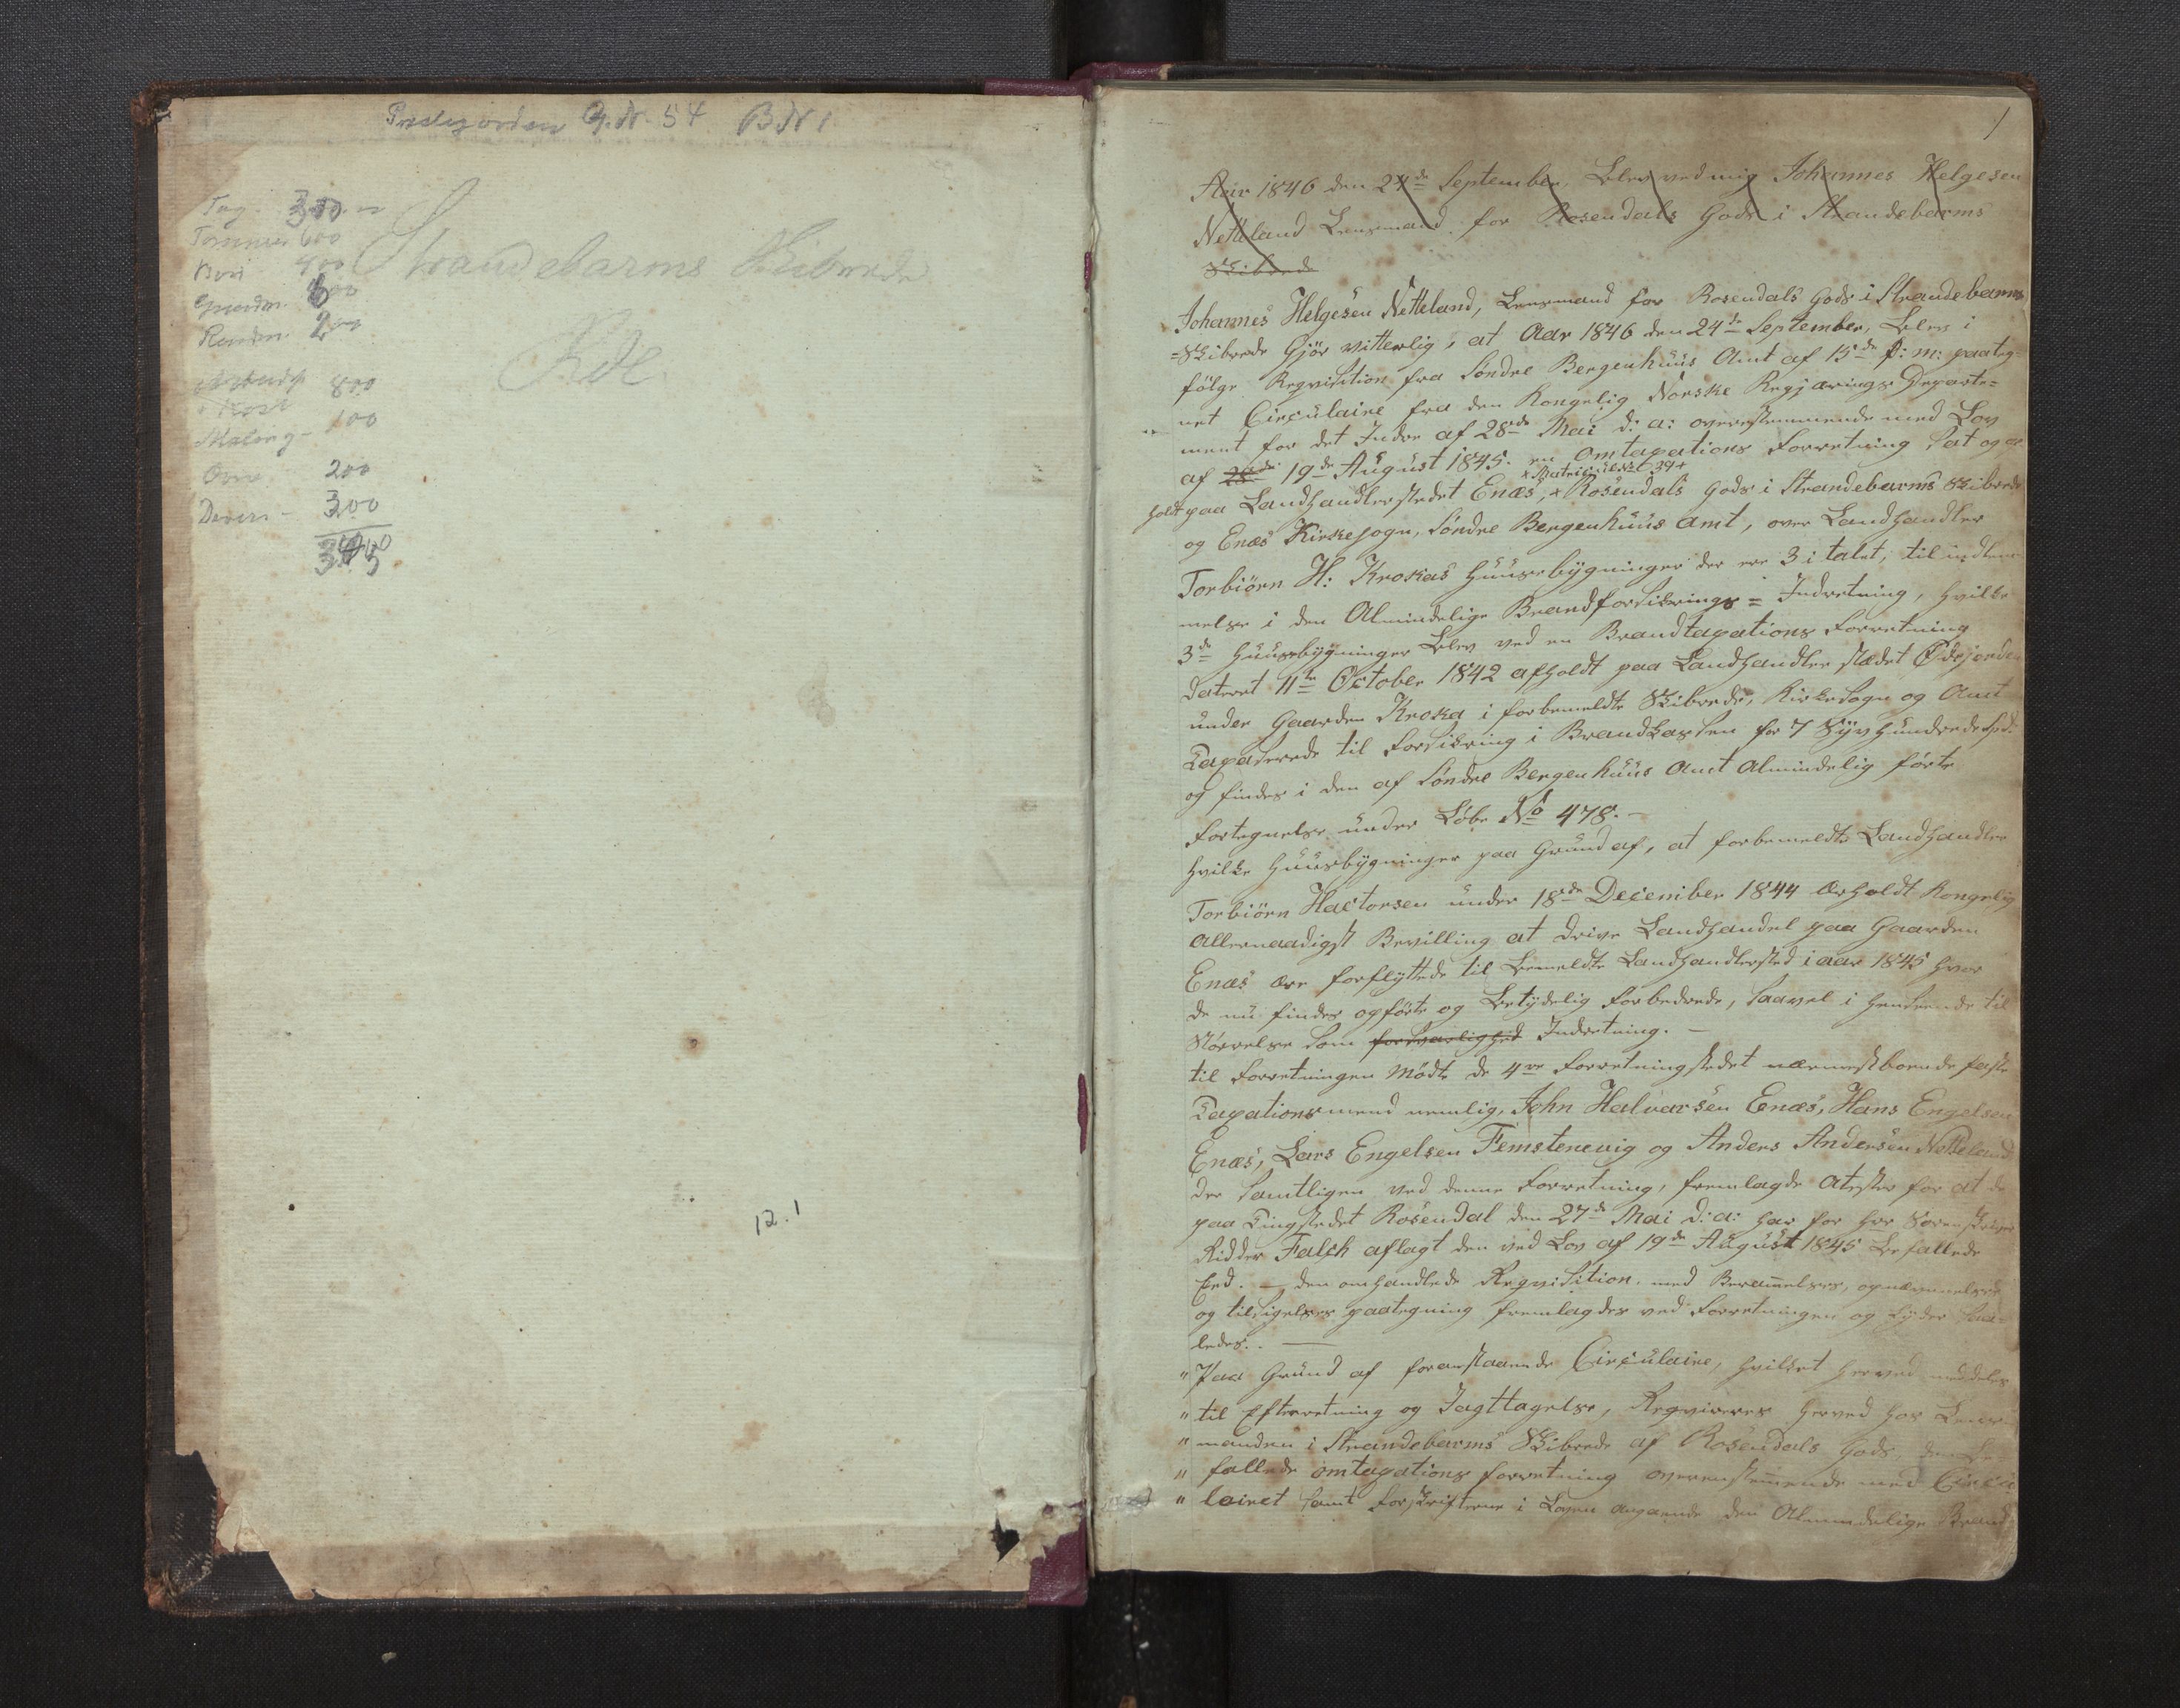 Prestegorden G.Nr. 54 B.Nr 1.
Tag. 300.
Tømmer 600
Bori 400
Grundm. 600
Rundm. 200
Kost 800
Maling - 100
Ovne 200
Divers - 300
Strandebarms Skibrede
Kvl.
12.1
1
Aar 1846 den 24de September, blev ved mig Johannes Helgesen
Netteland Lensmand for Rosendals Gods i Strandebarms
Skibrede
Johannes Helgesen Netteland, Lensmand for Rosendals Gods i Strandebarms
=Skibrede Gjør vitterlig, at Aar 1846 den 24de September, blev i
følge Reqvisition fra Søndre Bergenhuus Amt af 15de f: m: paateg-
net Circulaire fra den Kongelig Norske Regjærings Departe=
ment for det Indre af 28de Mai d: a: overenstemmende med Lov
af 28de 19de August 1845. en omtaxations Forretning sat og af
+ Matricül No 39 +
holdt paa Landhandlerstedet Enæs, + Rosendals Gods i Strandebarms Skibrede
og Enæs Kirkesogn, Søndre Bergenhuus Amt, over Landhandler
Torbiørn H: Krokas Huusebygninger der ere 3 i talet, til indlem-
melse i den Almindelige Brandforsikrings = Indretning, hvilke
3de Huusebygninger blev ved en Brandtaxations Forretning
dateret 11te October 1842 afholdt paa Landhandler stædet Ødejorden
under Gaarden Kroka i forbemeldte Skibrede, Kirkesogn og Amt
Taxserede til Forsikring i Brandkassen for 7 Syv Hundrede Spd.
og findes i den af Søndre Bergenhuus Amt Almindelig førte
Fortegnelse under Løbe No 478. -
Hvilke Huusebygninger paa Grund af, at forbemeldte Landhandler
Torbiørn Hactorsen under 18de December 1844 erholdt Kongelig
allernaadigst Bevilling at drive Landhandel paa Gaarden
Enæs ere forflyttede til bemeldte Landhandlersted i aar 1845 hvor
de nu findes opførte og betydelig forbedrede, saavel i Henseende til
Størrelse som forsvarlighed Indretning. -
til Forretningen Mødte de 4re Forretningstedet nærmestboende faste
Taxationsmend nemlig, John Halvarsen Enæs, Hans Engelsen
Enæs, Lars Engelsen Femstenevig og Anders Andersen Netteland
der samtligen ved denne Forretning, fremlagde Atester for at de
paa Tingstedet Rosendal den 27de Mai d: a: har for Hr Sorenskriver
Ridder Falch aflagt den ved Lov af 19de August 1845 befallede
Eed. - den omhandlede Reqvisition. med Berammelses, opnævnelses
og tilsigelses paategning fremlagdes ved Forretningen og Lyder saa=
ledes.. -
" Paa Grund af foranstaaende Circulaire, hvilket herved meddeles
" til Efterretning og Iagttagelse, Reqvireres herved hos Lens-
" manden i Strandebarms Skibrede af Rosendals Gods, den be-
" fallede omtaxations forretning overenstemmende med Circu
" lairet samt Forskrifterne i Loven angaaende den Almindelige Brand